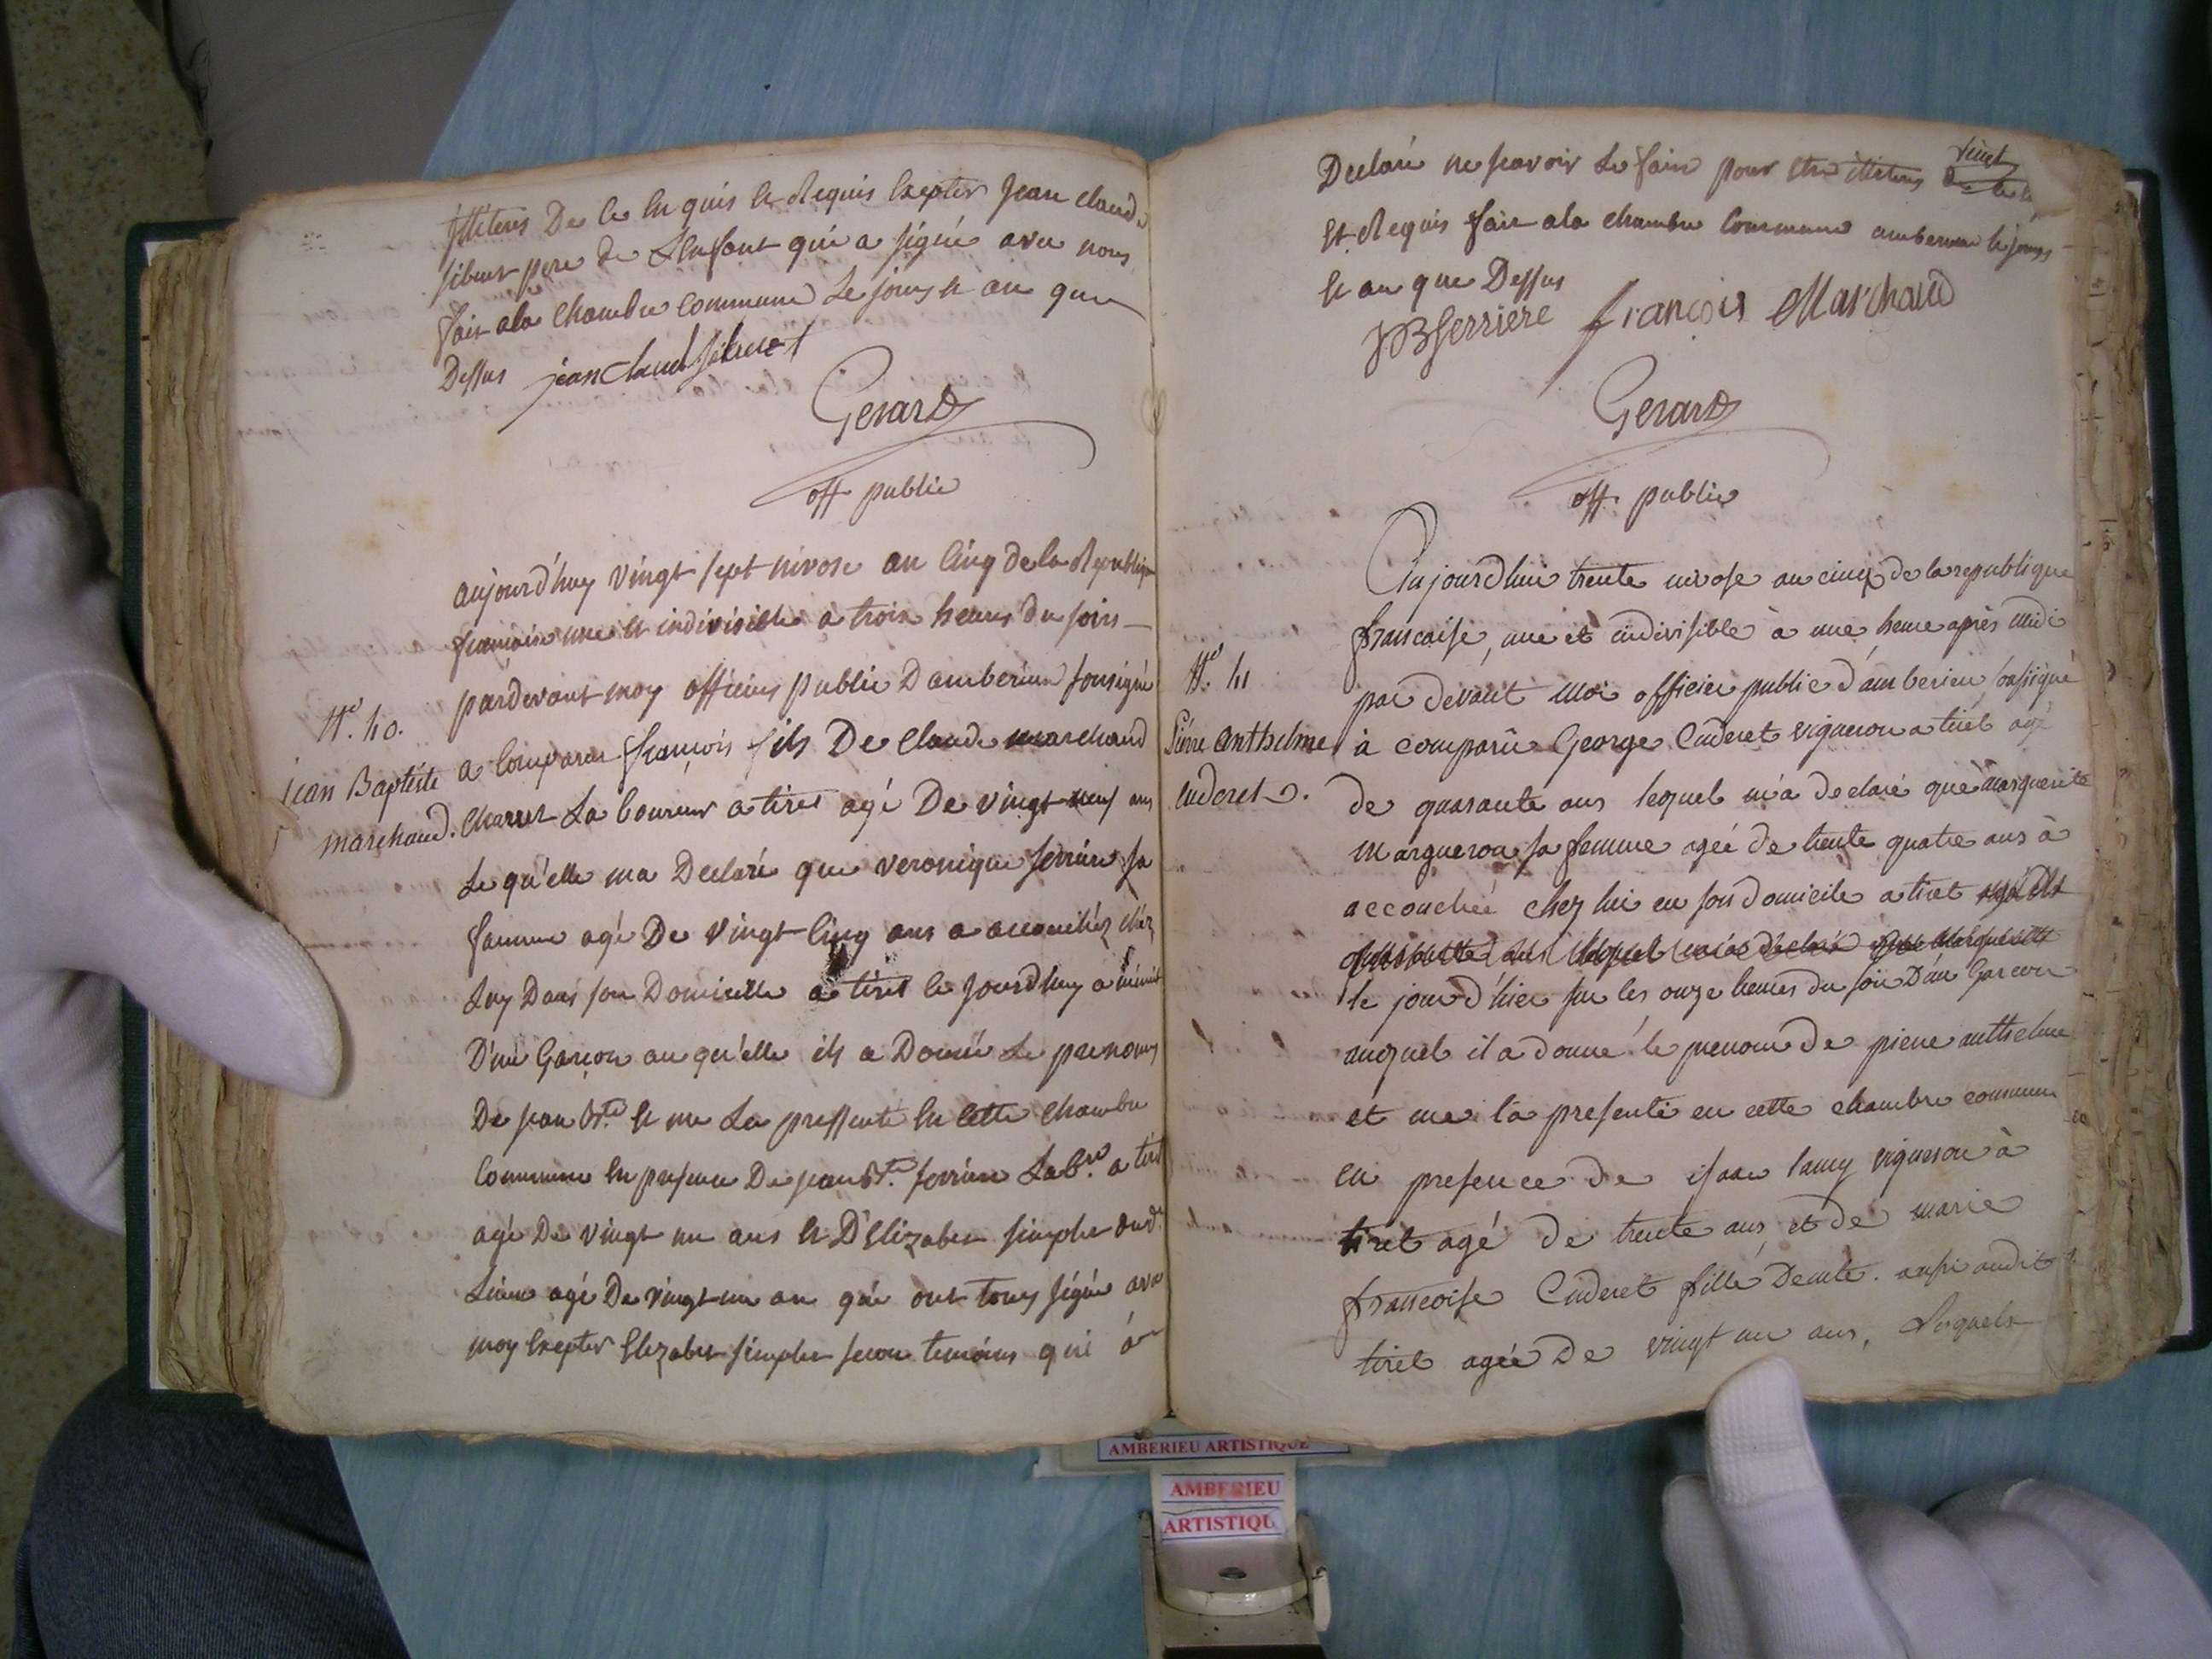 illiteres De le en quis le Requis Excepter jean claude
sibuet pere de L'enfant qui a signé avec nous
fait ala chambre commune Le jours et an que
Dessus jean claud sibuet
Gerard
off. public
aujourd'huy vingt sept nivose an cinq de la Republique
francaise une et indivisible a trois heures du soirs
pardevant moy officier public D'amberieux sousigné
Nº. 40.
jean Baptiste
marchaud.
a comparu françois fils De claude marchaud
charret La boureur a tiret agé De vingt neuf ans
Le qu'elle ma Declaré que veronique ferrière sa
famme agé De vingt cinq ans a accouchéz chéz
Luy Dans son Domicille a tiret le jourdhuy a minuit
D'un Garçon au qu'elle ils a Donné Le prenoms
De jean Bte et me La pressenté en cette chambre
Commune en presence De jean Bte. ferriere Labr. a tiret
agé De vingt un ans et D'Elizabet simplet dudt
Lieux agé De vingt un an qui ont tous signé avec
moy Excepter Elizabet simplet secon temoins qui a
Declaré ne scavoir Le faire pour etre illiteres
Et Requis fait ala chambre Commune amberieux le jours
et an que Dessus
JB ferriere françois Marchaud
Gerard
off. public
Aujourdhui trente nivose an cinq de la republique
francaise, une et indivisible à une heure après midi
par devant moi officier public d'amberieu sousigné
Nº. 41
Pierre Anthelme
Cuderet.
à comparu George Cuderet vigneron a tiret agé
de quarante ans lequel m'a declaré que Marguerite
Margueron sa femme ageé de trente quatre ans à
accouchée chez lui en son domicile a tiret agé de
quarante ans lequel m'a declaré que Marguerite
le jour d'hier sur les onze heures du soir D'un Garcon
auquel il a donné le prenom de pierre anthelme
et me l'a presenté en cette chambre commune
en presence de isaac lamy vigneron à
tiret agé de trente ans, et de marie
francoise Cuderet fille Demte. aussi audit
tiret ageé de vingt un ans, Lesquels
AMBERIEU ARTISTIQUE
AMBERIEU
ARTISTIQU